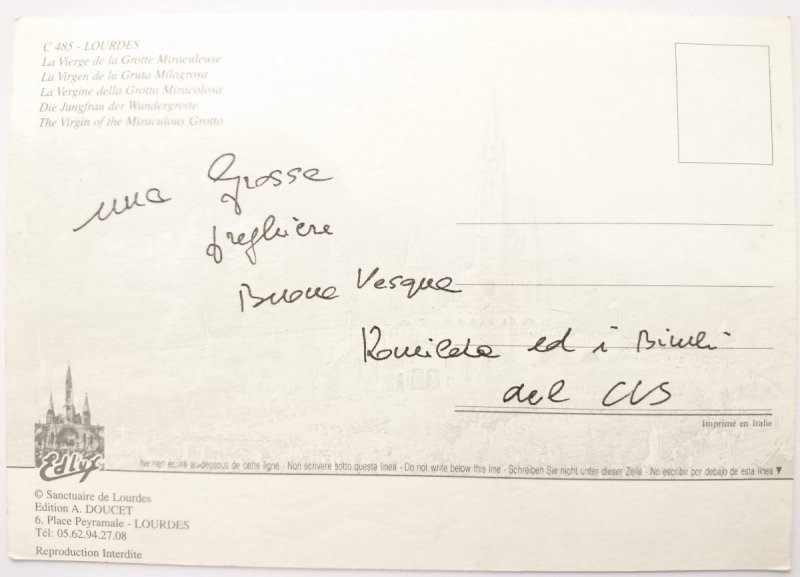 C 485 - LOURDES
La Vierge de la Grotte Miraculeuse
La Virgen de la Gruta Milagrosa
La Vergine della Grotta Miracolosa
Die Jungfrau der Wundergrotte
The Virgin of the Miraculous Grotto
una Grossa
preghiera
Buona Pasqua
Romilda ed i Bimbi
del CVS
Imprimé en Italie
Edlys
Ne rien écrire au-dessous de cette ligne - Non scrivere sotto questa linea - Do not write below this line - Schreiben Sie nicht unter dieser Zeile - No escribir por debajo de esta linea ▼
© Sanctuaire de Lourdes
Edition A. DOUCET
6, Place Peyramale - LOURDES
Tél: 05.62.94.27.08
Reproduction Interdite